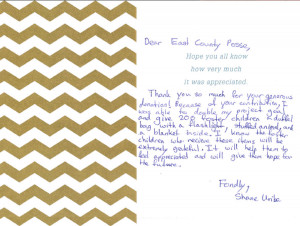 Dear East County Posse,
Hope you all know
how very much
it was appreciated.
Thank you so much for your generous
donation! Because of your contribution, I
was able to double my project goal
and give 200 foster children a duffel
bag with a flashlight, stuffed animal, and
a blanket inside. I know the foster
children who receive these items will be
extremely grateful. It will help them to
feel appreciated and will give them hope for
the future.
Fondly,
Shane